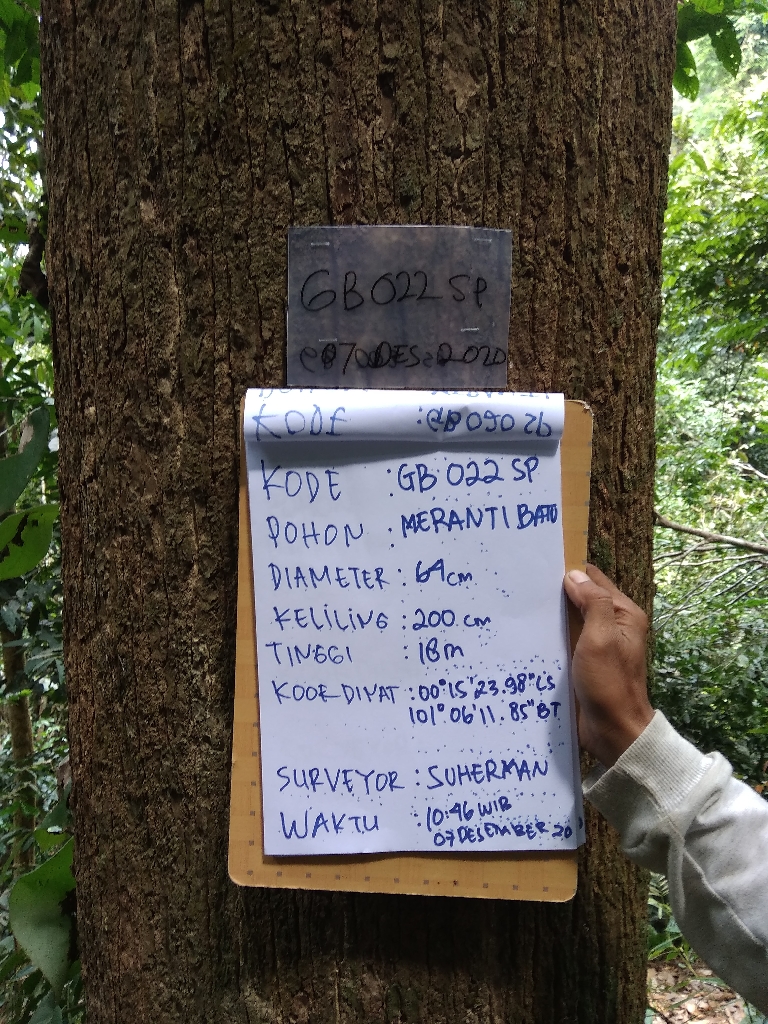 GB 022 SP
07 DES 2020
KODE : GB 090 2b
KODE : GB 022 SP
POHON : MERANTI BATU
DIAMETER : 64 cm
KELILING : 200 cm
TINGGI : 18 m
KOORDINAT : 00° 15' 23.98" LS
101° 06' 11.85" BT
SURVEYOR : SUHERMAN
WAKTU : 10:46 WIB
07 DESEMBER 20